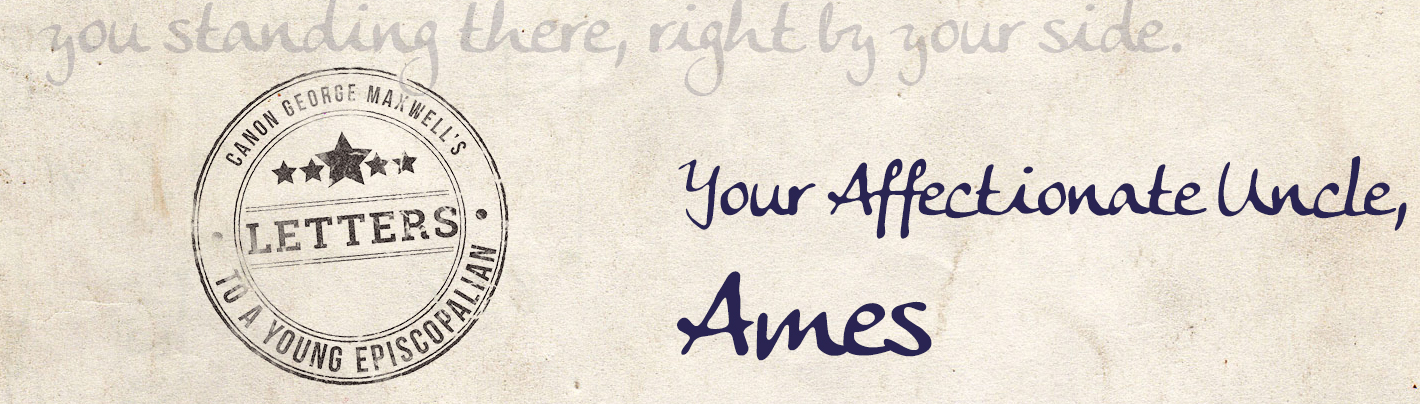 you standing there, right by your side.
CANON GEORGE MAXWELL'S
LETTERS
TO A YOUNG EPISCOPALIAN
Your Affectionate Uncle,
Ames